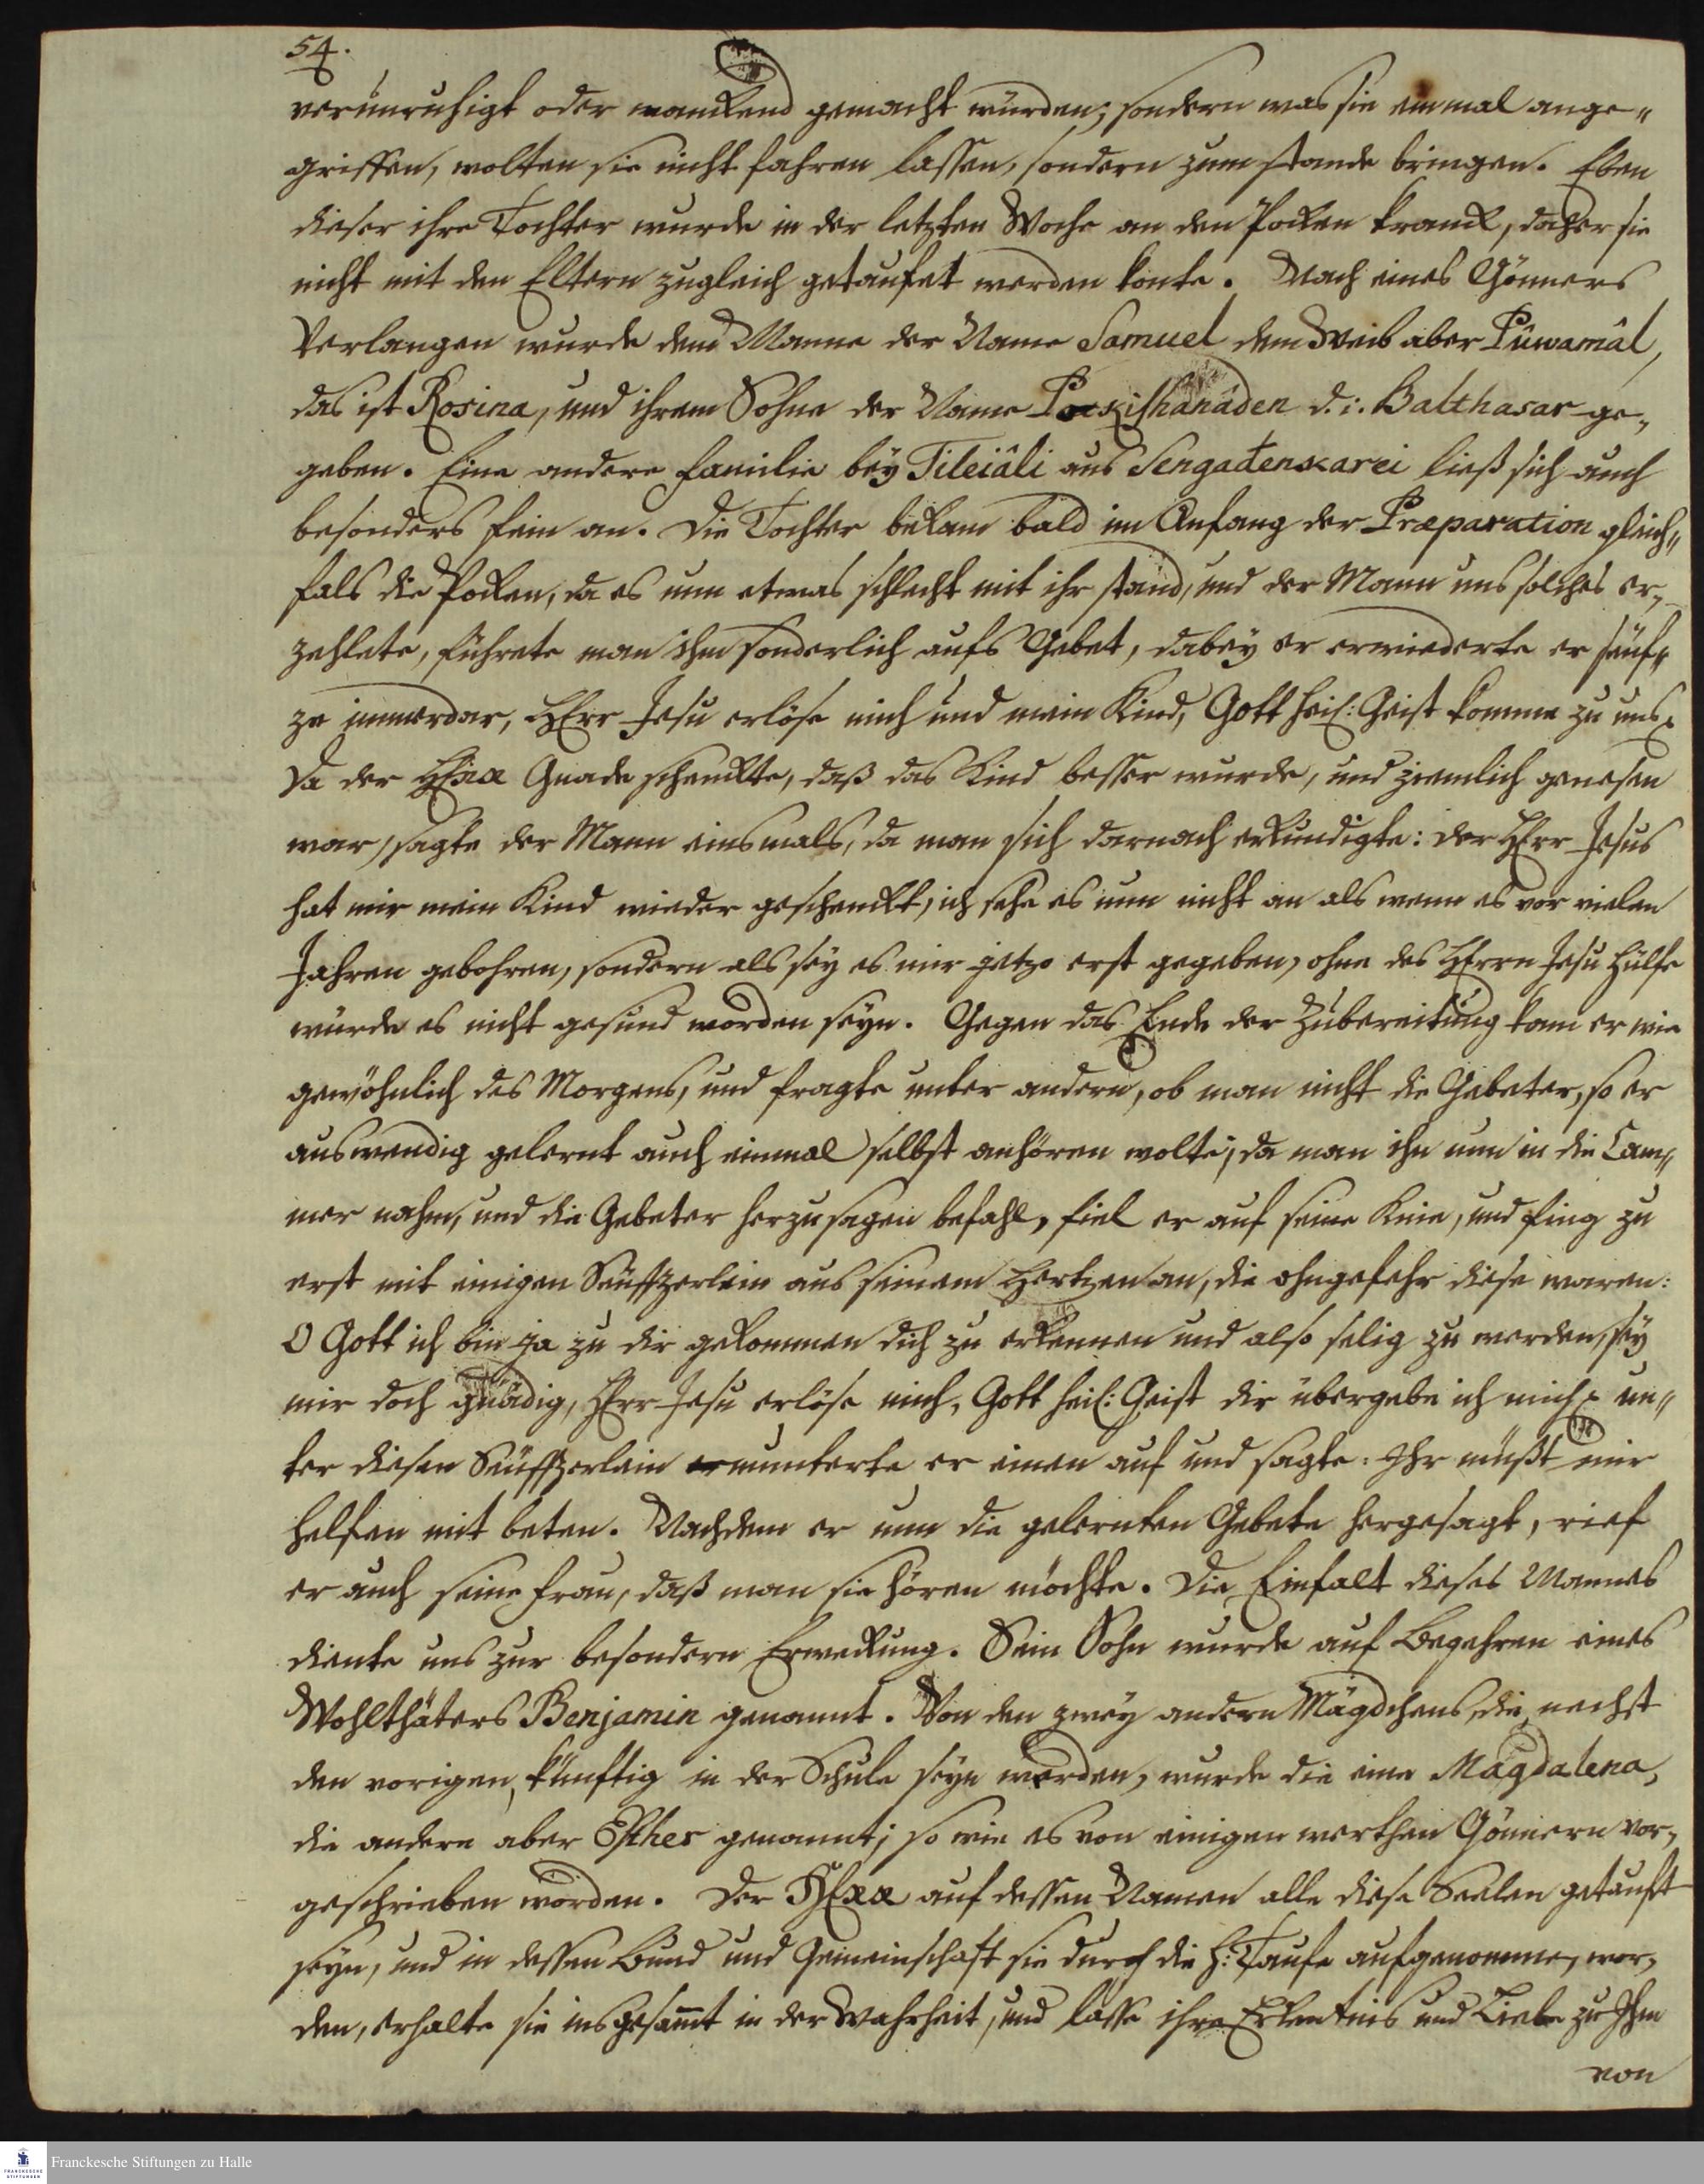 54.
verunruhigt oder wanckend gemacht würden; sondern was sie einmal ange-
griffen, wolten sie nicht fahren lassen, sondern zum stande bringen. Eben
dieser ihre Tochter wurde in der letzten Woche an den Pocken kranck, daher sie
nicht mit den Eltern zugleich getaufet werden konte. Nach eines Gönners
Verlangen wurde dem Manne der Name Samuel dem Weib aber Pûwamâl,
das ist Rosina, und ihrem Sohne der Name d. i. Balthasar ge-
geben. Eine andere Familie bey Tileiâli aus Sengadenkarei ließ sich auch
besonders fein an. Die Tochter bekam bald im Anfang der Præparation gleich-
fals die Pocken, da es nun etwas schlecht mit ihr stand, und der Mann uns solches er-
zehlete, führete man ihn sonderlich aufs Gebet, dabey er erwiederte er seuf-
ze immerdar, HErr Jesu erlöse mich und mein Kind, Gott heil: Geist komme zu uns.
Da der HErr Gnade schenckte, daß das Kind besser wurde, und ziemlich genesen
war, sagte der Mann einsmals, da man sich darnach erkundigte: der HErr Jesus
hat mir mein Kind wieder geschenckt, ich sehe es nun nicht an als wenn es vor vielen
Jahren gebohren, sondern als sey es mir jetzo erst gegeben, ohne des HErrn Jesu Hülfe
würde es nicht gesund worden seyn. Gegen das Ende der Zubereitung kam er wie
gewöhnlich des Morgens, und fragte unter andern, ob man nicht die Gebeter, so er
auswendig gelernt auch einmal selbst anhören wolte; da man ihn nun in die Cam-
mer nahm, und die Gebeter herzusagen befahl, fiel er auf seine Knie, und fing zu
erst mit einigen Seuffzerlein aus seinem Hertzen an, die ohngefehr diese waren:
O Gott ich bin ja zu dir gekommen dich zu erkennen und also selig zu werden, sey
mir doch gnädig, HErr Jesu erlöse mich, Gott heil: Geist dir übergebe ich mich. un-
ter diesen Seuffzerlein munterte er einen auf und sagte: Ihr müßt mir
helfen mit beten. Nachdem er nun die gelernten Gebete hergesagt, rief
er auch seine Frau, daß man sie hören möchte. Die Einfalt dieses Mannes
diente uns zur besondern Erweckung. Sein Sohn wurde auf Begehren eines
Wohlthäters Benjamin genannt. Von den zwey andern Mägdchens, die nechst
den vorigen künftig in der Schule seyn werden, wurde die eine Magdalena,
die andere aber Esther genannt; so wie es von einigen werthen Gönnern vor-
geschrieben worden. Der HErr auf dessen Namen alle diese Seelen getauft
seyn, und in dessen Bund und Gemeinschaft sie durch die H: Taufe aufgenommen wor-
den, erhalte sie insgesammt in der Wahrheit, und lasse ihre Erkentnis und Liebe zu Ihm
von
FRANCKESCHE STIFTUNGEN
Franckesche Stiftungen zu Halle